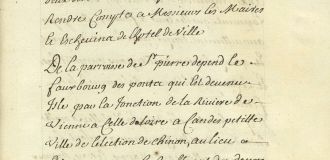 Rendre Comptes a Messieurs les Maires
le Eschevins de lhotel de Ville
De la parroisse de St pierre depend le
fauxbourg des ponts qui Est devenu
Isle par la Jonction de la Riviere de
Vienne a Celle de loire a Candes petitte
Ville de lelection de chinon, au lieu